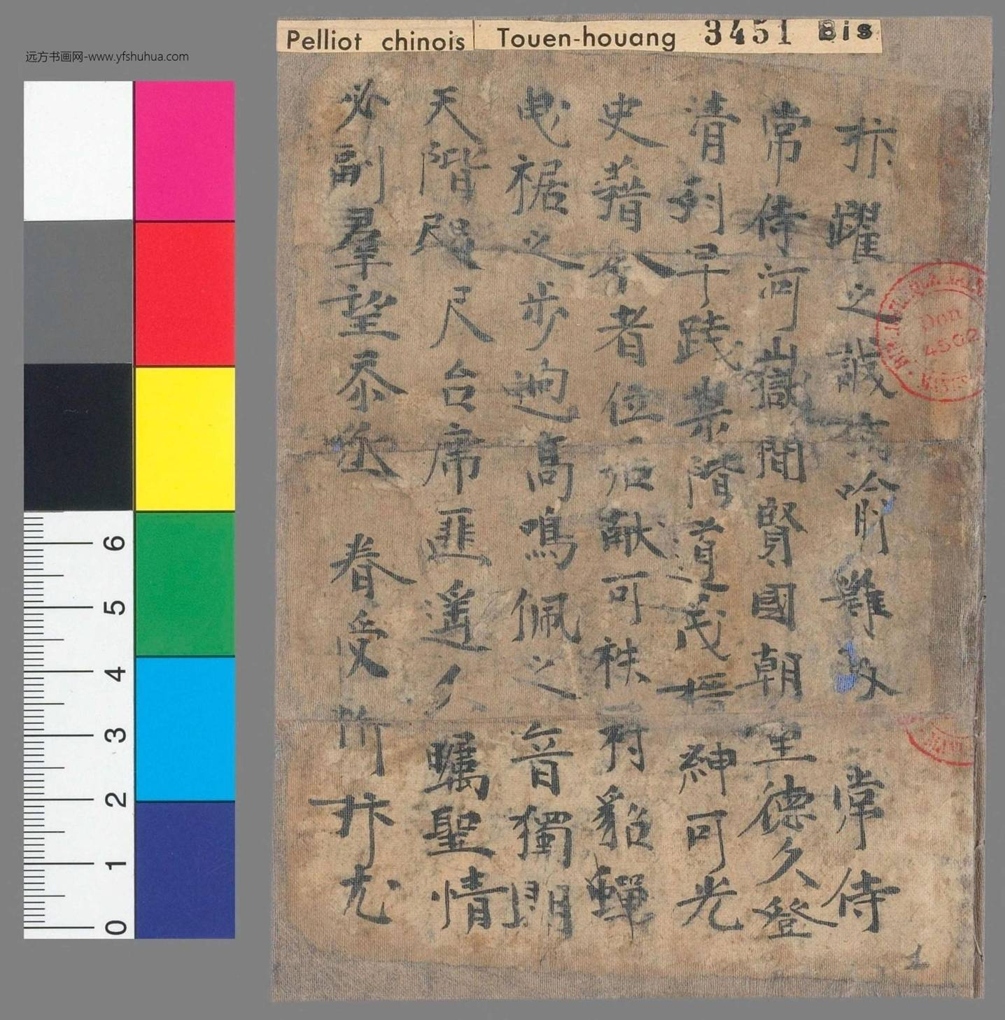 Pelliot chinois Touen-houang 3451 Bis
远方书画网-www.yfshuhua.com
抃躍之誠喻難 常侍
常侍河嶽間賢國朝德久登
清列早踐崇階道茂搢紳可光
史藉今者位献可秩貂蟬
曳裾之步逈高鳴佩之音獨朗
天階咫尺台席匪遙人矚聖情
必副羣望忝丞 眷受所抃尤
Don 4502
6
5
4
3
2
1
0